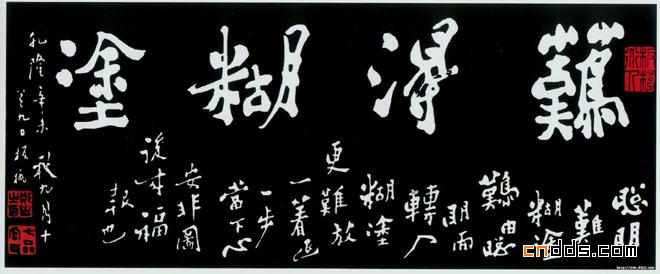 難得糊塗
聰明
難
糊塗
難由聰
明而
轉入
糊塗
更難放
一着退
一步
當下心
安非圖
後來福
報也
乾隆辛未秋九月十
九日板橋
cndds.com